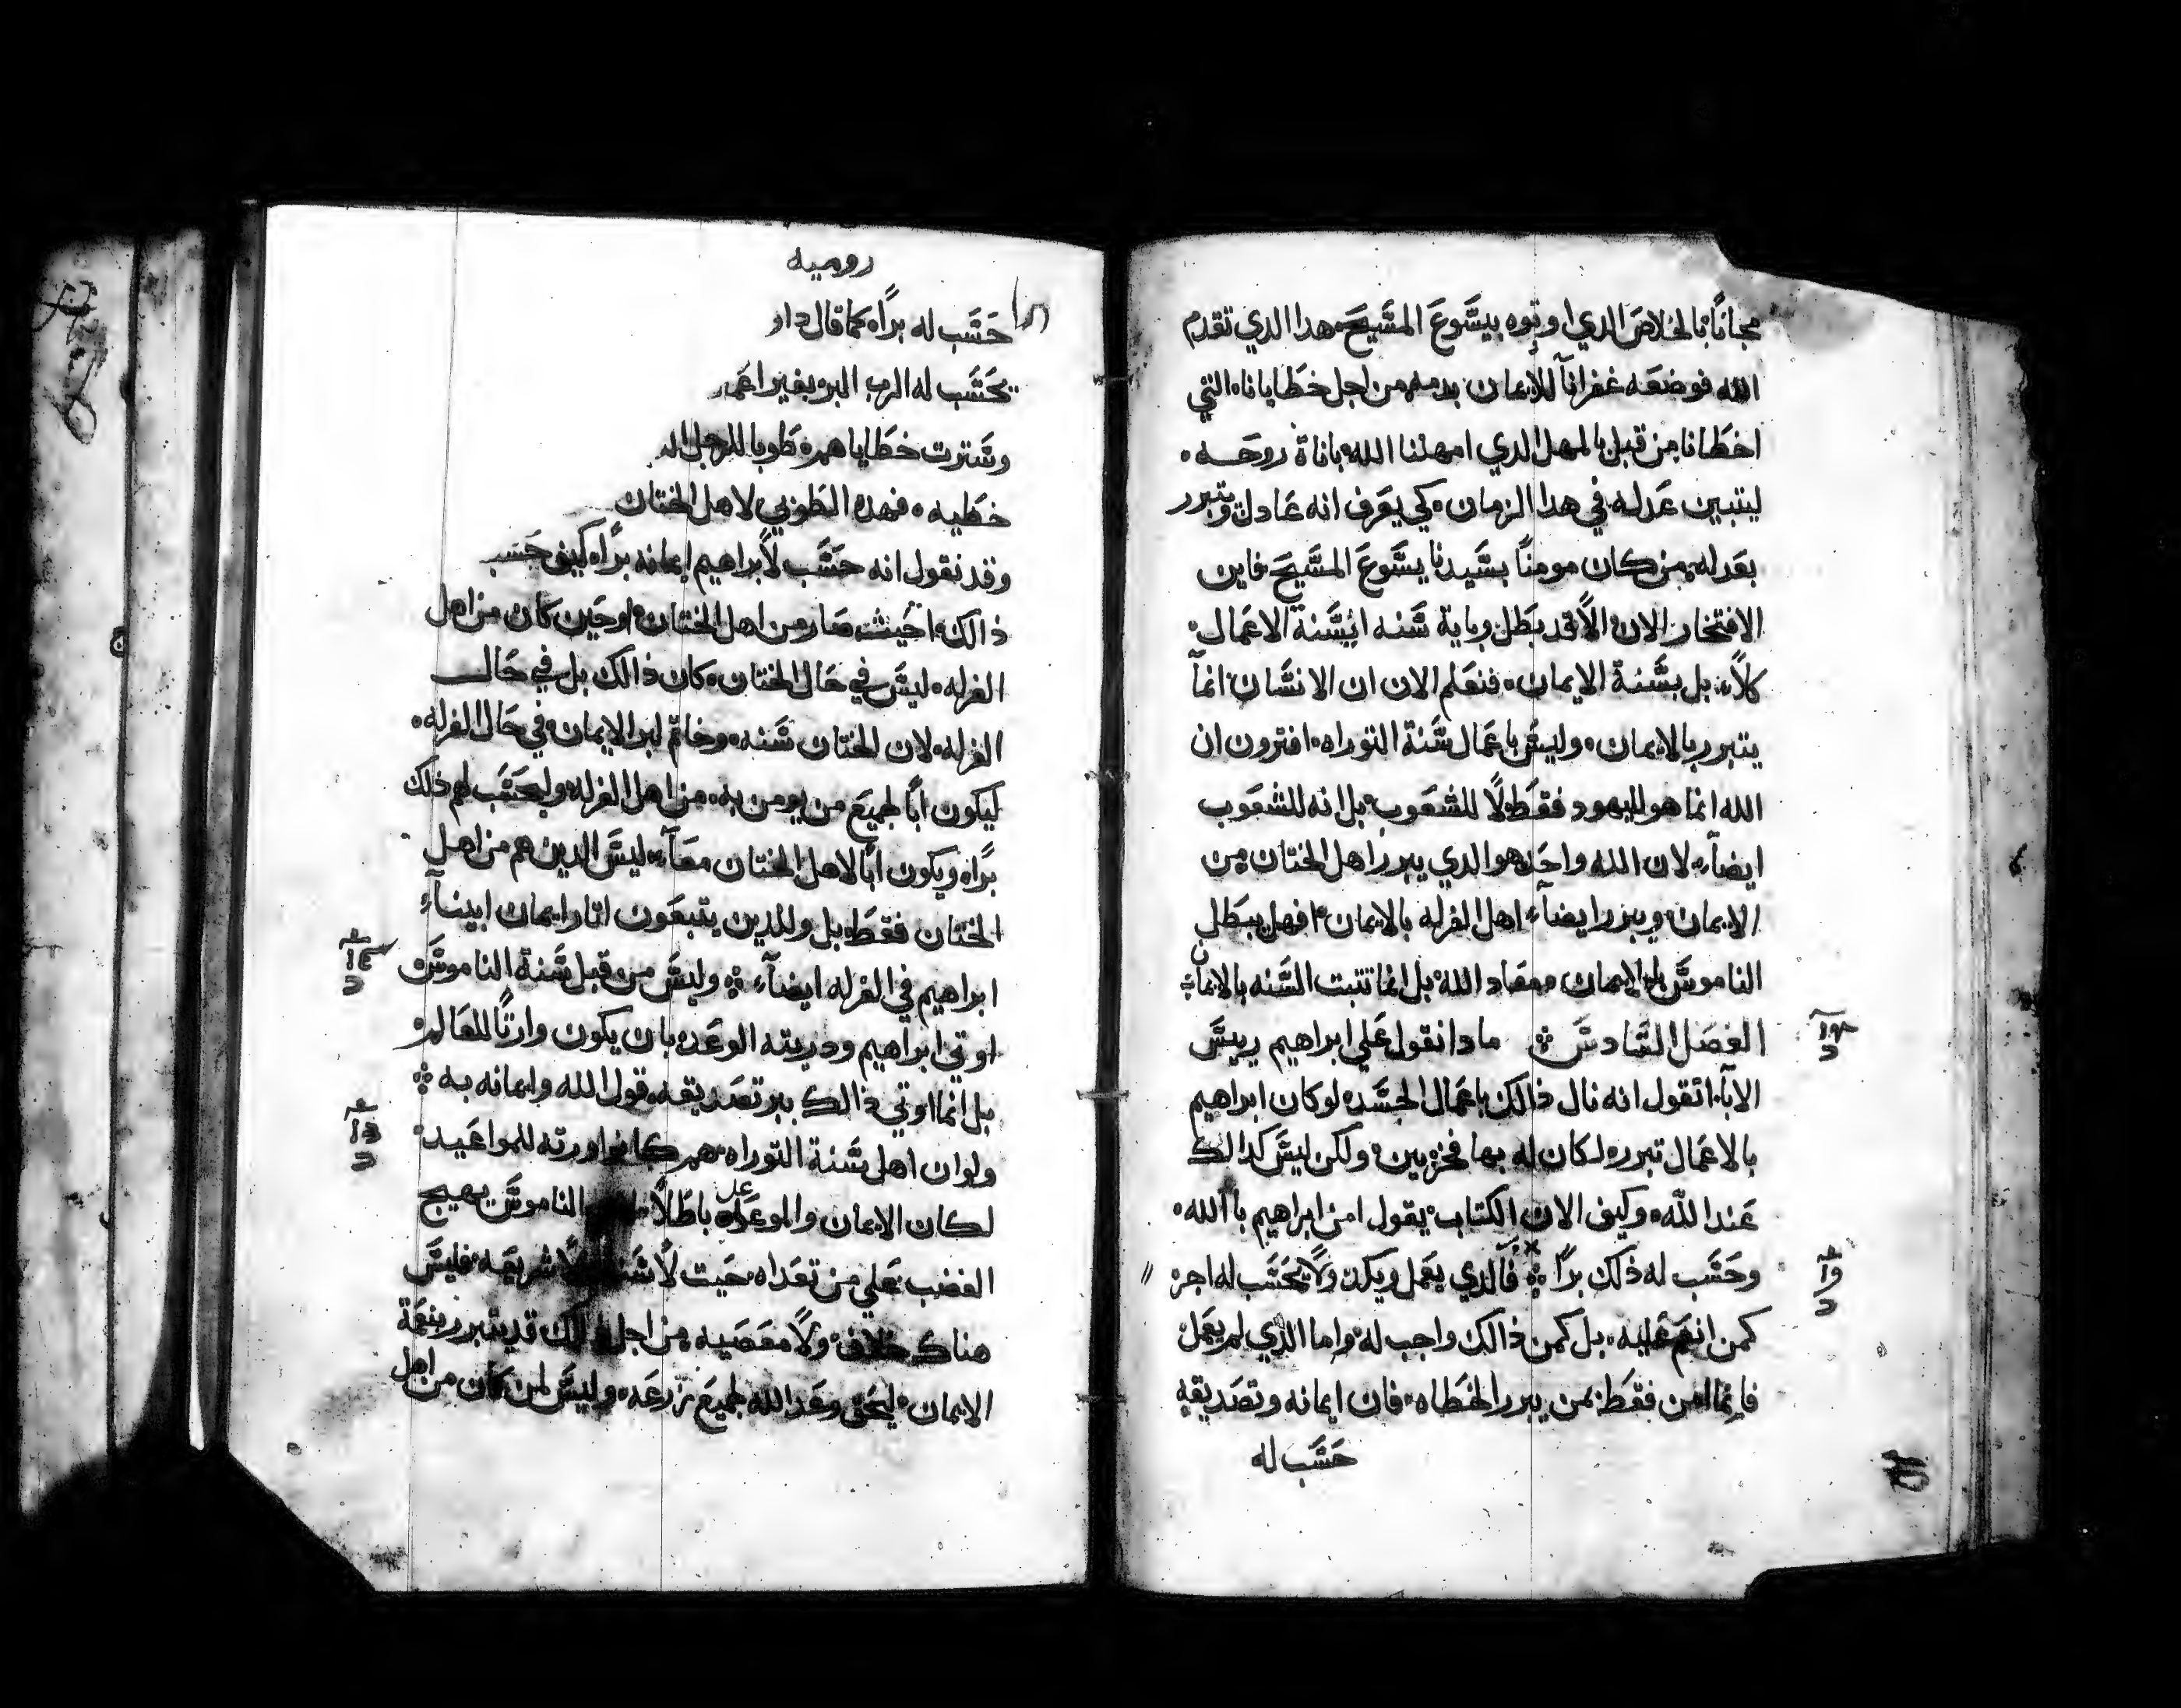 مجاناً بالخلاص الدي اوتوه بيسوع المسيح هدا الدي تقدم
الله فوضعه غفراناً للايمان بدمه من اجل خطايانا التي
اخطانا من قبل بالمهل الدي امهلنا الله باناة روحه
ليتبين عدله في هدا الزمان كي يعرف انه عادل وتبرر
بعدله من كان مومناً بسيدنا يسوع المسيح فاين
الافتخار الان الا قد بطل وباية سنه ابسنة الاعمال
كلا بل بسنة الايمان فنعلم الان ان الانسان انما
يتبرر بالايمان وليس باعمال سنة التوراه افترون ان
الله انما هو لليهود فقط لا للشعوب بل انه للشعوب
ايضاً لان الله واحد هو الدي يبرر اهل الختان من
الايمان ويبرر ايضاً اهل الغرله بالايمان افهل يبطل
الناموس الايمان معاد الله بل انما تتبت السنه بالايمان
الفصل السادس مادا نقول علي ابراهيم رييس
الابا اتقول انه نال ذالك باعمال الجسد لو كان ابراهيم
بالاعمال تبرر لكان له بها فخر بين ولكن ليس كدالك
عند الله وكيف الان الكتاب يقول امن ابراهيم بالله
وحسب له ذلك براً فالدي يعمل ويكد ولا يحسب له اجره
كمن انعم عليه بل كمن ذالك واجب له واما الذي لم يعمل
فانما امن فقط بمن يبرر الخطاه فان ايمانه وتصديقه
حسب له
روميه
حسب له براً كما قال داو
يحسب له الرب البر بغير اعما
وسترت خطاياهم طوبا للرجل الد
خطيه فهده الطوبي لاهل الختان
وقد نقول انه حسب لابراهيم ايمانه براً كيف حسب
ذالك احيث صار من اهل الختان او حين كان من اهل
الغرله ليس في حال الختان كان ذالك بل في حال
الغرله لان الختان سنه وخاتم لبر الايمان في حال الغرله
ليكون اباً لجميع من يومن به من اهل الغرله وليحسب لهم ذلك
براً ويكون اباً لاهل الختان معاً ليس الدين هم من اهل
الختان فقط بل وللدين يتبعون اتار ايمان ابينا
ابراهيم في الغرله ايضاً وليس من قبل سنة الناموس
اوتي ابراهيم ودريته الوعد بان يكون وارتاً للعالم
بل انما اوتي ذالك ببر تصديقه قول الله وايمانه به
ولو ان اهل سنة التوراه هم كانوا ورته للمواعيد
لكان الايمان والموعد باطلاً الناموس يهيج
الغضب علي من تعداه حيت لا سنه لا شريعه فليس
هناك خلاف ولا معصيه من اجل ذلك قد يتبرر بنعمة
الايمان ليحق وعد الله لجميع زرعه وليس لمن كان من اهل